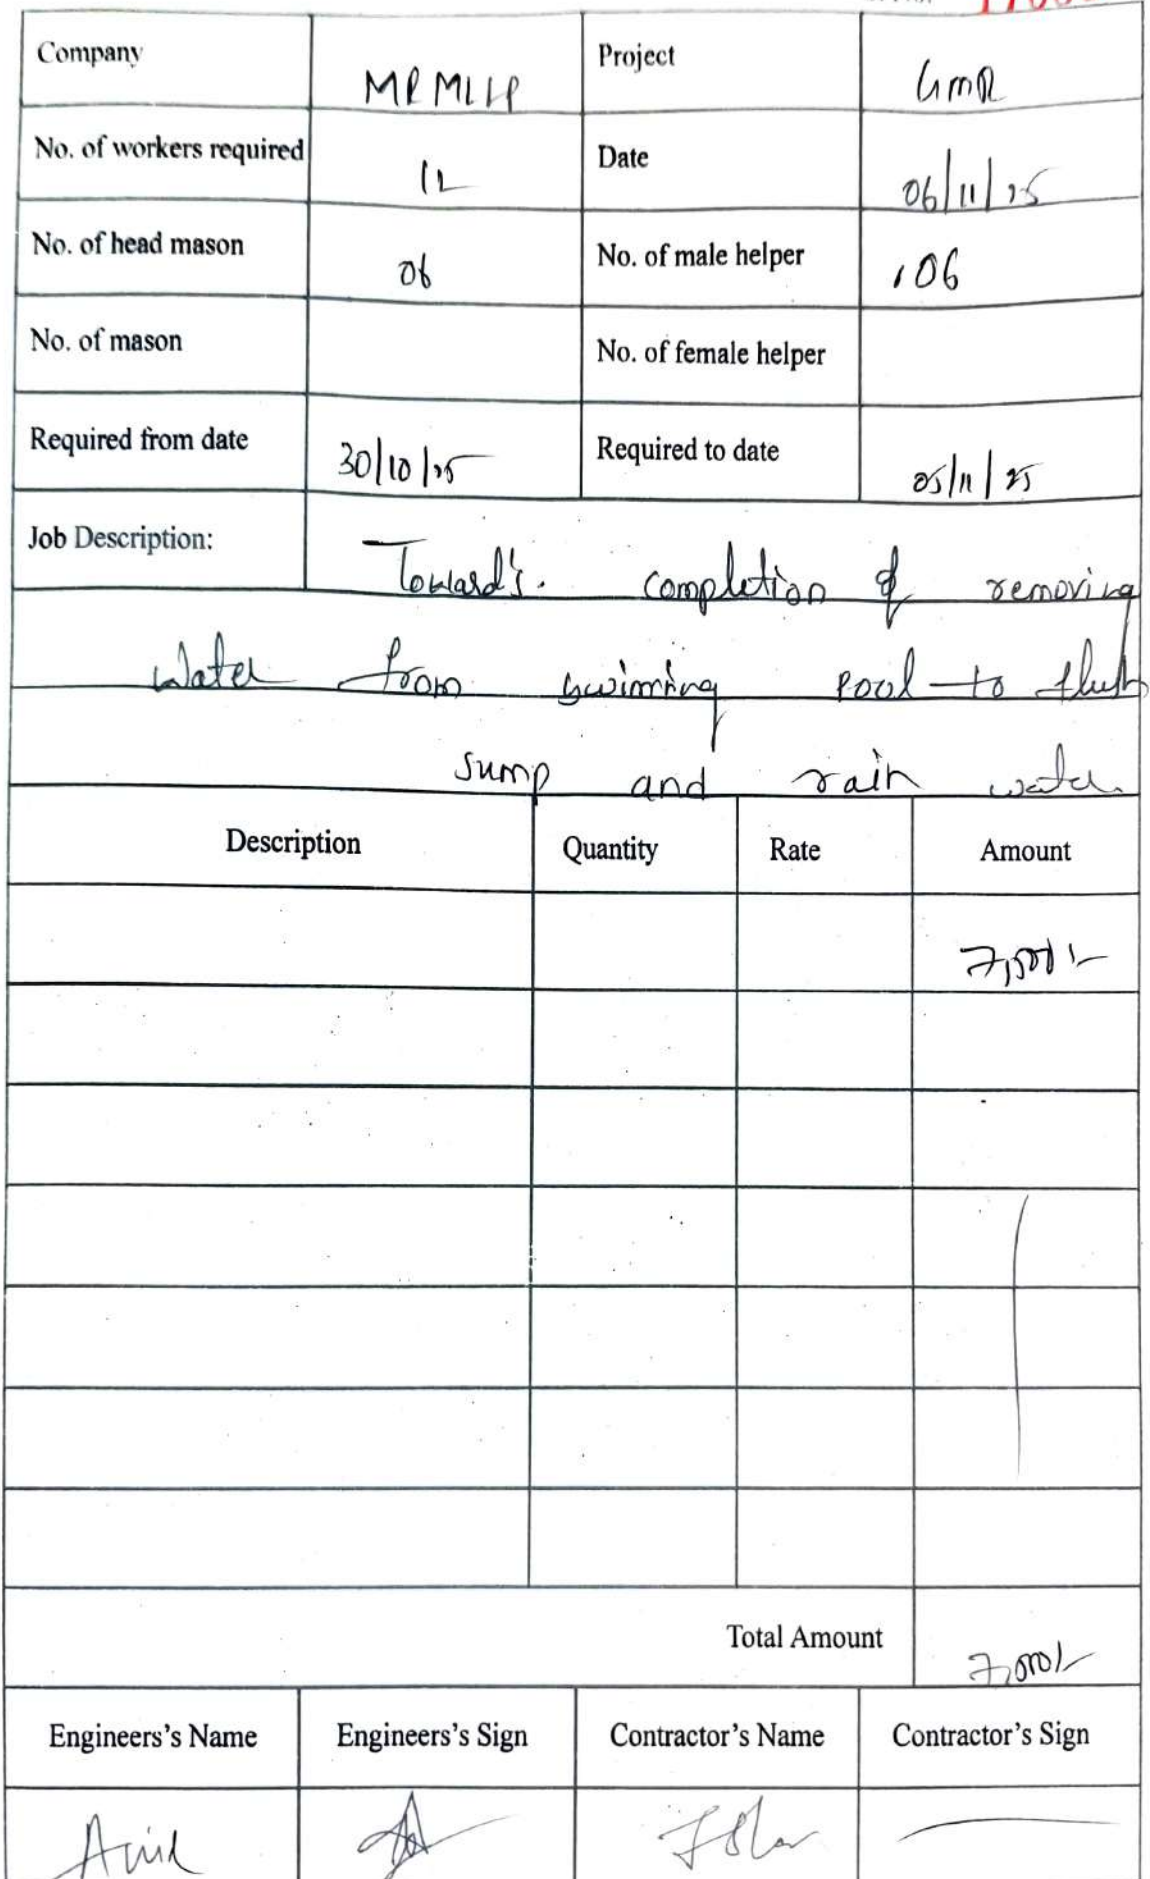 Company MRMLLP Project GMR
No. of workers required 12 Date 06/11/25
No. of head mason 06 No. of male helper 06
No. of mason No. of female helper
Required from date 30/10/25 Required to date 05/11/25
Job Description: Toward's. completion of removing
water from swimming pool to flush
sump and rain water
Description Quantity Rate Amount
Total Amount 7,000/-
Engineers's Name Engineers's Sign Contractor's Name Contractor's Sign